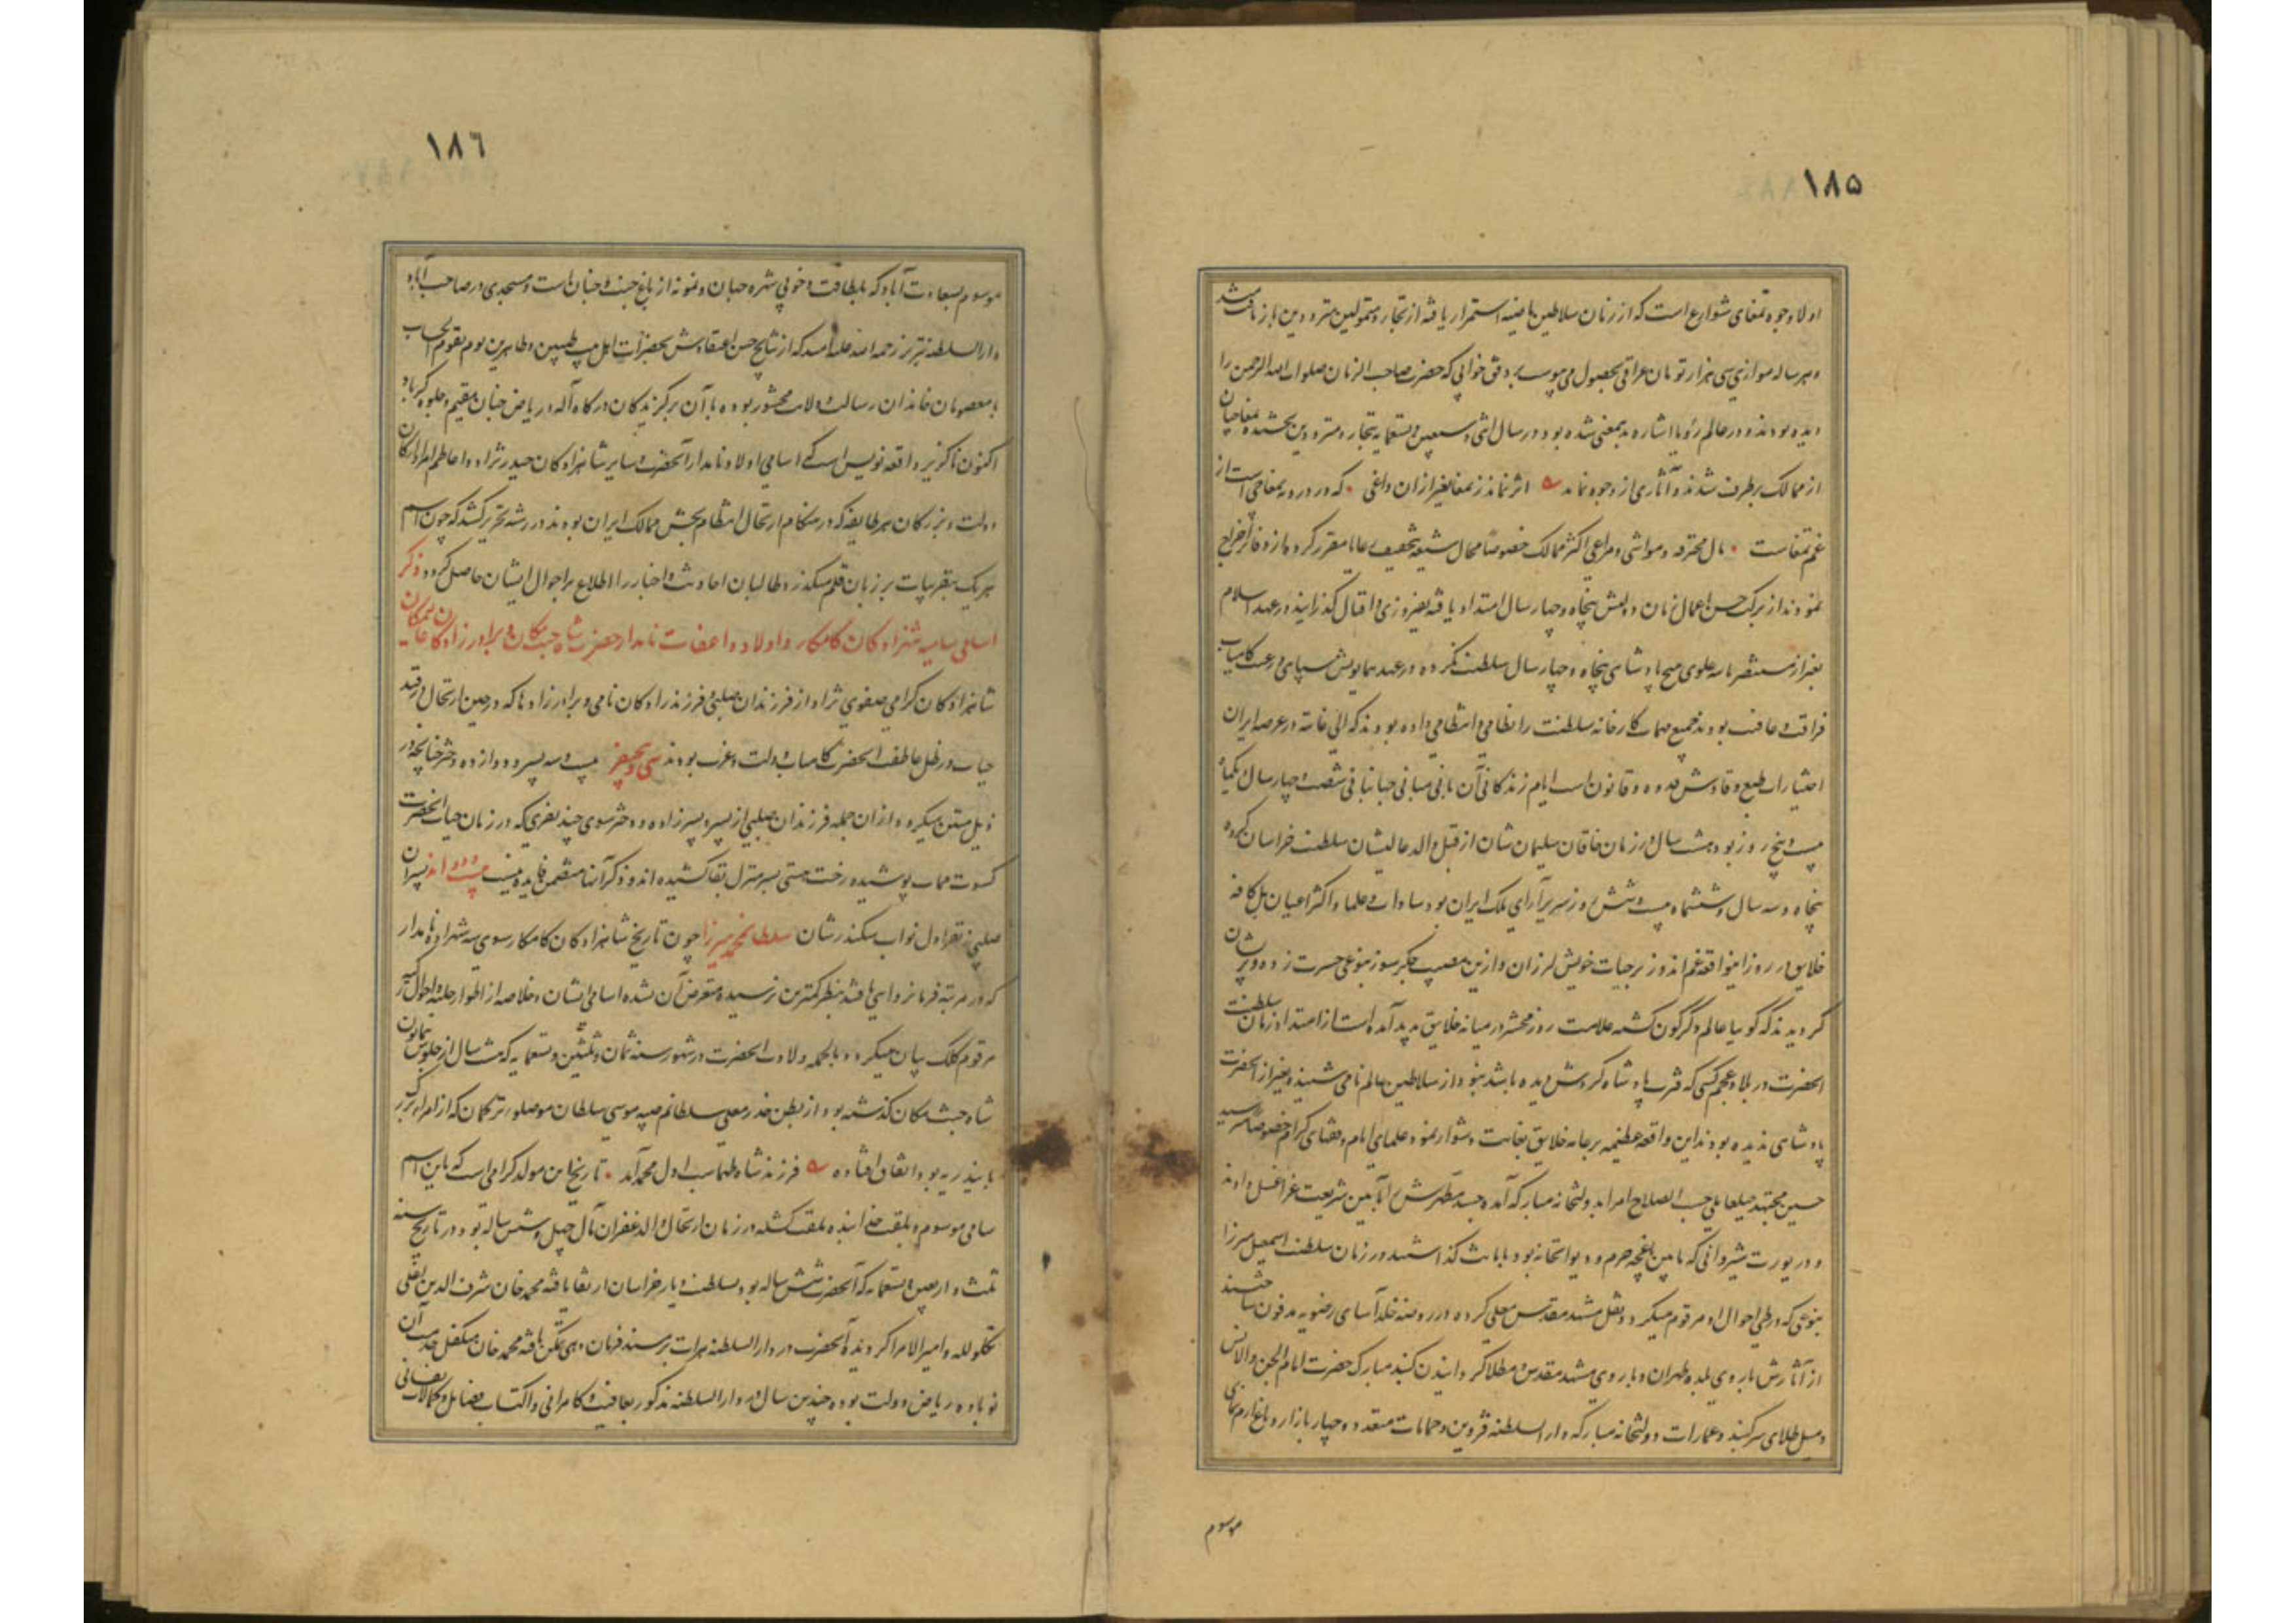 ١٨٥
اولا وجوه تمغای شوارع است که از زمان سلاطین ماضیه استمرار یافته از تجار و متمولین مترددین باز یافت میشد
و هر ساله موازی سی هزار تومان عراقی بحصول می‌پیوست بر وفق خوابی که حضرت صاحب الزمان صلوات الله الرحمن را
دیده بودند و در عالم رؤیا اشاره بدینمعنی شده بود در سال اثنی و سبعین و تسعمایه بتجار و مترددین بخشیده تمغاچیان
از ممالک برطرف شدند و آثاری از وجوه نماند اثر نماند ز تمغا بغیر از آن داغی که در درونه تمغاچی است از
غم تمغاست مال محترفه و مواشی و مراعی اکثر ممالک خصوصا محال شیعه بتخفیف رعایا مقرر کرده از دفاتر اخراج
نمودند از برکت حسن اعمال زمان دولتش پنجاه و چهار سال امتداد یافته بفیروزی و اقبال گذرانید در عهد اسلام
بغیر از مستنصر بالله علوی هیچ پادشاهی پنجاه و چهار سال سلطنت نکرده در عهد همایونش سپاهی و رعیت کامیاب
فراغت و عافیت بودند جمیع مهمات کارخانه سلطنت را نظامی و انتظامی داده بودند که الی غایته در عرصه ایران
اختیارات طبع وقادش قدوه و قانون است ایام زندگانی آن بانی مبانی جهانبانی شصت و چهار سال و یکماه
بیست و پنج روز بود هشت سال در زمان خاقان سلیمان شان از قبل والد عالیشان سلطنت خراسان کرده
پنجاه و سه سال و ششماه بیست و شش روز سریر آرای ملک ایران بود سادات و علما و اکثر اعیان بل کافه
خلایق در روز اینواقعه غم اندوز بر حیات خویش لرزان و ازین مصیبت جگرسوز بنوعی حسرت زده و پریشان
گردیدند که گویا عالم دگرگون گشته علامت روز محشر در میانه خلایق پدید آمده است از امتداد زمان سلطنت
آنحضرت در بلاد عجم کسی که قرب پادشاه گردش دیده باشد نبود از سلاطین عالم نامی نشنیده بغیر از آنحضرت
پادشاهی ندیده بودند این واقعه عظیمه بر عامه خلایق بغایت دشوار نمود علمای اسلام و فضلای کرام خصوصا میر سید
حسین مجتهد جبلعاملی حسب الصلاح امرا بدولتخانه مبارکه آمده جسد مطهرش را بآیین شریعت غرا غسل دادند
و در یورت شیروانی که مابین باغچه حرم و دیوانخانه بود بامانت گذاشتند در زمان سلطنت اسمعیل میرزا
بنوعی که در طی احوال او مرقوم میگردد نقل مشهد مقدس معلی کرده در روضه خلد آسای رضویه مدفون ساختند
از آثارش باروی بلده طهران و باروی مشهد مقدس و مطلا گردانیدن گنبد مبارک حضرت امام الجن والانس
و میل طلای سر گنبد و عمارات دولتخانه مبارکه دار السلطنه قزوین و حمامات متعدده چهار بازار و باغ ارم نمای
موسوم
١٨٦
موسوم بسعادت آباد که بلطافت و خوبی شهره جهان و نمونه از باغ جنت و جنان است و مسجدی در صاحب آباد
دار السلطنه تبریز رحمه الله علیه امید که از نتایج حسن اعتقادش بحضرات اهل بیت طیبین و طاهرین یوم یقوم الحساب
با معصومان خاندان رسالت و ولایت محشور بوده با آن برگزیدگان درگاه آله در ریاض جنان مقیم و جلوه گر باد
اکنون ناگزیر واقعه نویس است که اسامی اولاد نامدار آنحضرت و سایر شاهزادگان حیدر نژاد و اعاظم امرا و ارکان
دولت و بزرگان هر طایفه که در هنگام ارتحال انتظام بخش ممالک ایران بودند در رشته تحریر کشد که چون اسم
هریک بتقریبات بر زبان قلم میگذرد طالبان احادیث و اخبار را اطلاع بر احوال ایشان حاصل گردد ذکر
اسامی سامیه شهزادگان کامکار و اولاد و اعقاب نامدار حضرت شاه جنت مکان و برادرزادگان
شاهزادگان گرامی صفوی نژاد از فرزندان صلبی و فرزندزادگان نامی و برادرزادها که در حین ارتحال در قید
حیات در ظل عاطفت آنحضرت کامیاب دولت و عزت بودند سی و پنج نفر بیست و سه پسر و دوازده دختر چنانچه در
ذیل مبین میگردد از آن جمله فرزندان صلبی از پسر و پسرزاده و دختر سوی چند نفری که در زمان حیات آنحضرت
کسوت ممات پوشیده رخت هستی بسر منزل بقا کشیده‌اند و ذکر آنها متضمن فایده نیست اند پسران
صلبی نه نفر اول نواب سکندرشان سلطان محمد میرزا چون تاریخ شاهزادگان کامکار سوی سه شهزاده نامدار
که در مرتبه فرمانروایی یافته بنظر کمترین نرسیده متعرض آن نشده اسامی ایشان و خلاصه از اطوار و احوال هر یک
مرقوم کلک بیان میگردد بالجمله ولادت آنحضرت در شهور سنه ثمان و ثلثین و تسعمایه که هشت سال از جلوس همایون
شاه جنت مکان گذشته بود از بطن خدر معلی سلطانم صبیه موسی سلطان موصلوی ترکمان که از امراء بزرگ
بایندریه بود اتفاق افتاده فرزند شاه طهماسب اول محمد آمد تاریخ این مولد گرامی است که باین اسم
سامی موسوم و بلقب خدابنده ملقب گشته در زمان ارتحال والد غفران مآل چهل و شش ساله بود و در تاریخ سنه
ثلث و اربعین و تسعمایه که آنحضرت شش ساله بود بسلطنت دیار خراسان ارتقا یافته محمد خان شرف الدین اغلی
تکلو لله و امیر الامرا گردیده آنحضرت در دار السلطنه هرات بر مسند فرمان دهی تمکن یافته محمد خان متکفل خدمت آن
نوباوه ریاض دولت بوده چندین سال در دار السلطنه مذکور بعافیت و کامرانی و اکتساب فضایل و کمالات نفسانی